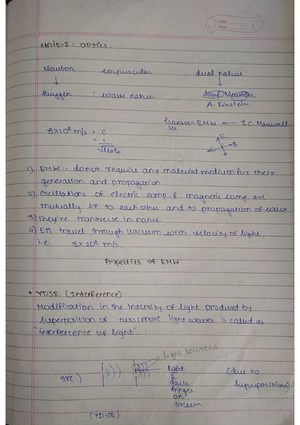 Unit-I : Optics.
Newton corpuscular dual nature
↓ ↓
Huygen : wave nature
A. Einstein
EMW ← J.C. Maxwell
3×10⁸ m/s = C
1) EMW - donot require any material medium for their
generation and propagation.
2) Oscillations of electric comp & magnetic comp. are
mutually ⊥r to each other and to propagation of wave
3) they're transverse in nature
4) EM travel through vacuum with velocity of light
i.e 3×10⁸ m/s.
Properties of EMW.
• YDSE (Interference)
Modification in the intensity of light produced by
superposition of two/more light waves is called as
"interference of light".
light sources
src) light (due to
& superposition)
dark
fringes
on
screen
(YDSE)